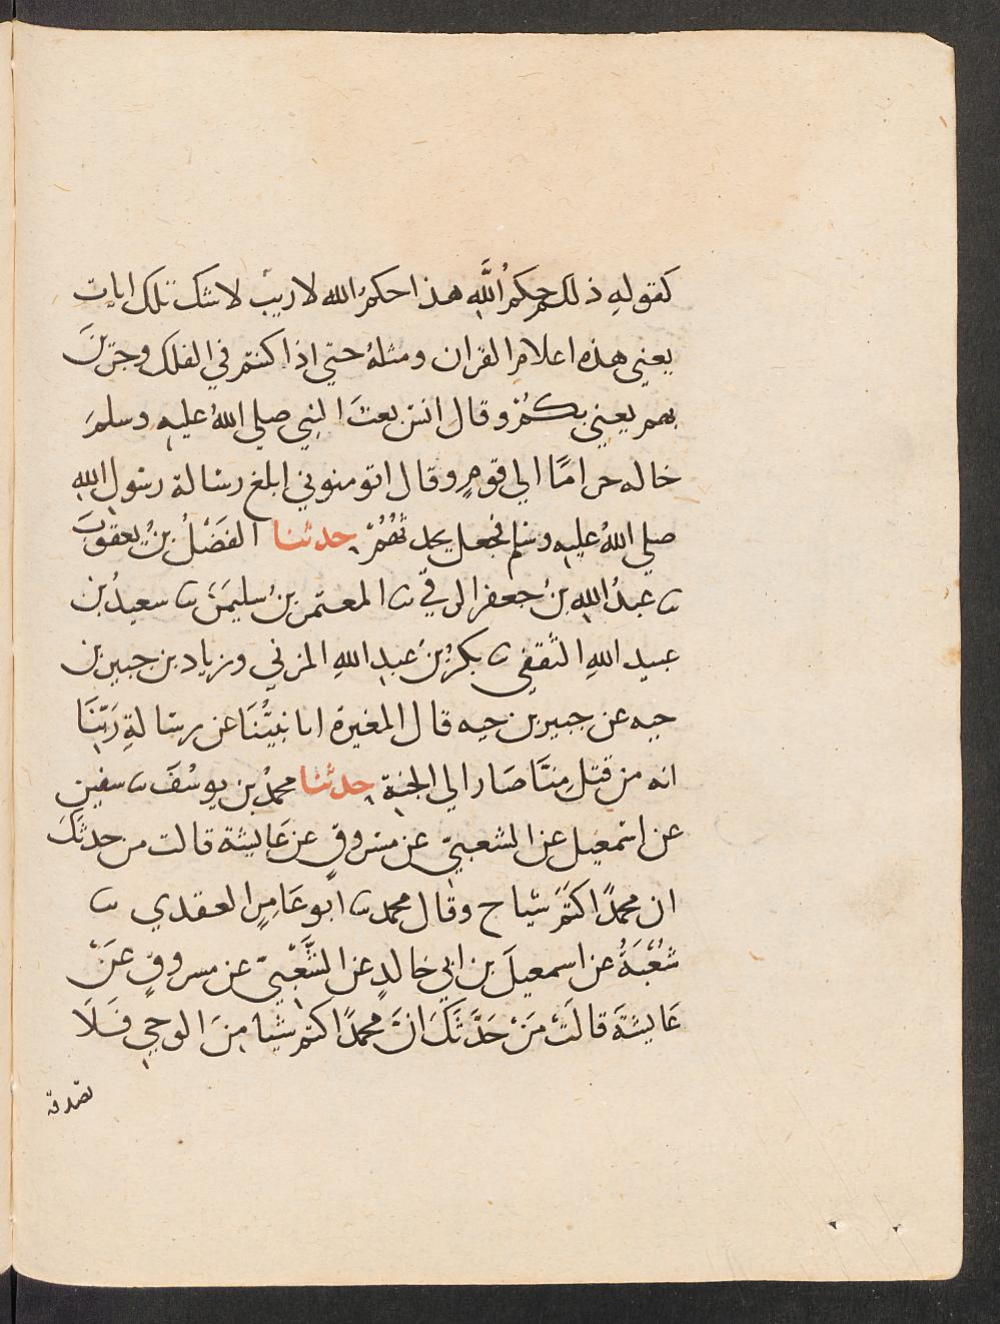 كقوله ذلكم حكم اللَّه هذا حكم الله لا ريب لا شك تلك ايات
يعني هذه اعلام القران ومثله حتي اذا كنتم في الفلك وجرين
بهم يعني بكم وقال انس بعث النبي صلي الله عليه وسلم
خاله حراما الي قومٍ وقال اتومنوني ابلغ رسالة رسول الله
صلي الله عليه وسلم فجعل يحدثهم حدثنا الفضل بن يعقوب
ثنا عبد الله بن جعفر الرقي ثنا المعتمر بن سليمن ثنا سعيد بن
عبيد الله الثقفي ثنا بكر بن عبد الله المزني وزياد بن جبير بن
حيه عن جبير بن حيه قال المغيرة انا نبيُّنا عن رسالةِ ربّنا
انه من قتل منا صار الي الجنة حدثنا محمد بن يوسف ثنا سفين
عن اسمعيل عن الشعبي عن مسروقٍ عن عايشة قالت من حدثك
ان محمدًا كتم شيا ح وقال محمد ثنا ابو عامرٍ العقدي ثنا
شُعْبَةُ عن اسمعيلَ بن ابي خالدٍ عن الشَّعْبيّ عن مسروقٍ عَنْ
عايشةَ قالَتْ مَنْ حَدَّثَكَ انَّ محمدًا كتم شيا مِنَ الوحي فَلَا
تصدقه